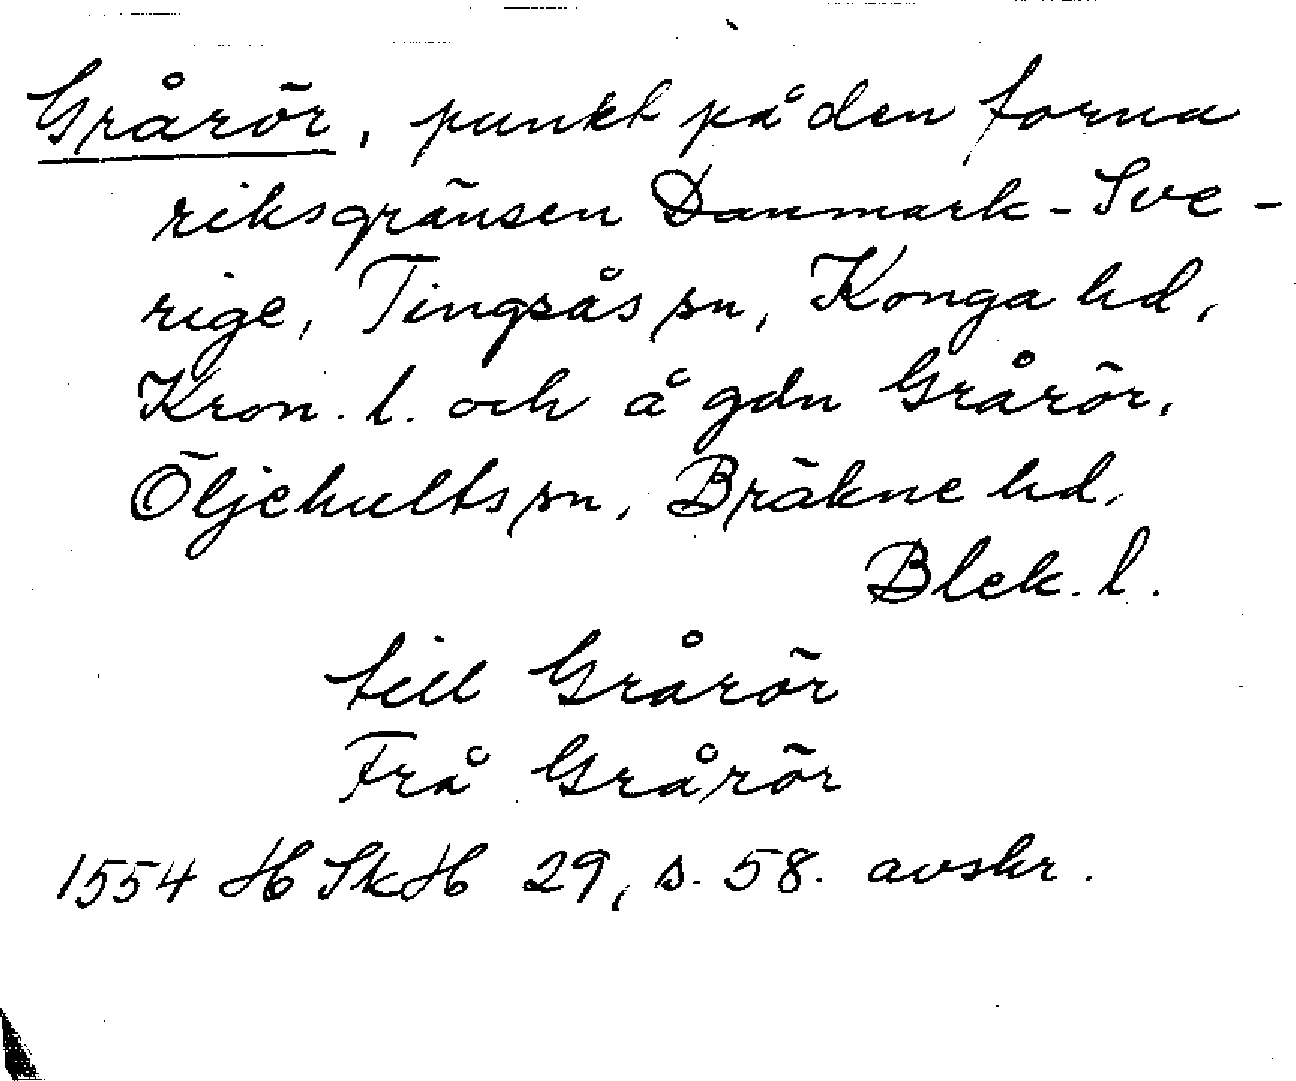 Grårör, punkt på den forna
riksgränsen Danmark-Sve-
rige, Tingsås sn, Konga hd,
Kron. l. och å gdn Grårör,
Öljehults sn, Bräkne hd,
Blek. l.
till Grårör
Frå Grårör
1554 HSkH 29, s. 58. avskr.